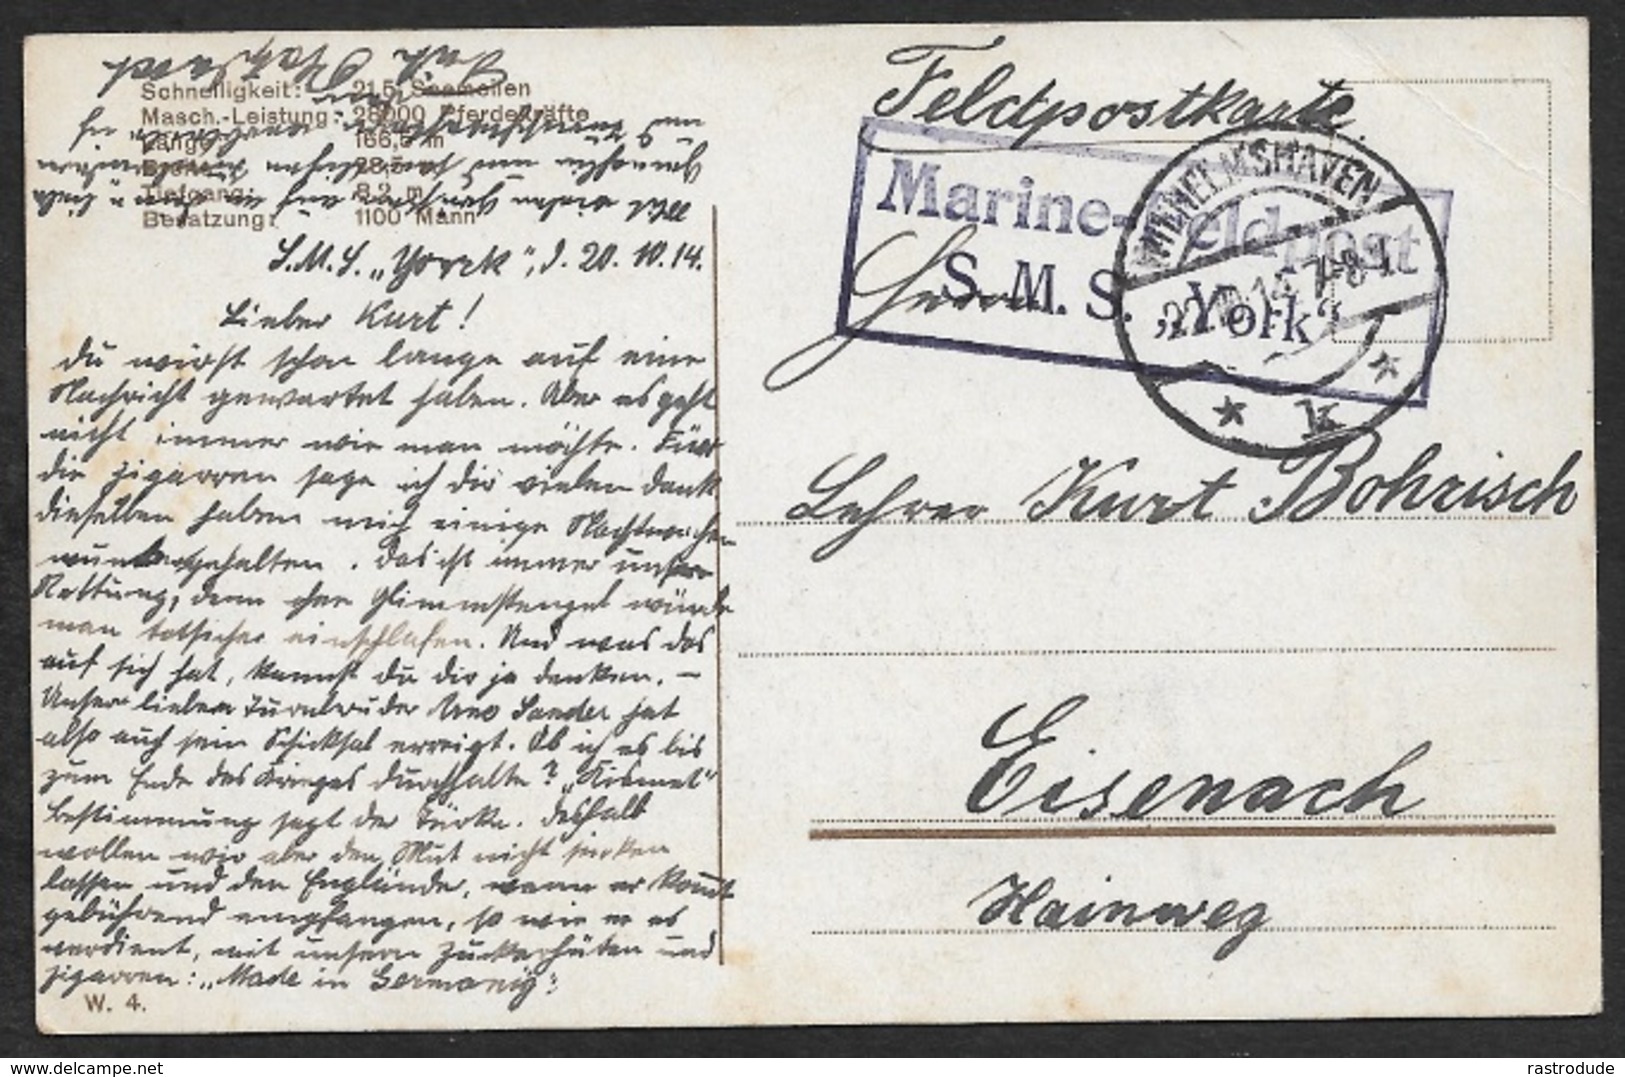 Schnelligkeit: 21,5 Seemeilen
Masch.-Leistung: 28000 Pferdekräfte
Länge: 166,5 m
Breite: 28,5 m
Tiefgang: 8,2 m
Besatzung: 1100 Mann
S.M.S. „Yorck“, d. 20.10.14.
Lieber Kurt!
Du wirst schon lange auf eine
Nachricht gewartet haben. Aber es geht
nicht immer wie man möchte. Für
die Zigarren sage ich dir vielen Dank
dieselben haben mich einige Nachtwachen
munter gehalten. Das ist immer unsre
Rettung, denn ohne Glimmstengel würde
man totsicher einschlafen. Und was das
auf sich hat, kannst du dir ja denken. –
Unser lieber Turnbruder Arno Sander hat
also auch sein Schicksal erreigt. Ob ich es bis
zum Ende des Krieges durchhalte? „Kismet“
Bestimmung sagt der Türke. Deshalb
wollen wir aber den Mut nicht sinken
lassen und den Engländer, wenn er kommt
gebührend empfangen, so wie er es
verdient, mit unsern Zuckerhüten und
Zigarren: „Made in Germany“:
W. 4.
Mit vielen Grüßen auf
Feldpostkarte.
Marine-Feldpost
S. M. S. „York“
WILHELMSHAVEN
14 7-8
* k *
Herrn
Lehrer Kurt Bohrisch
Eisenach
Hainweg
rastrodude
delcampe.net